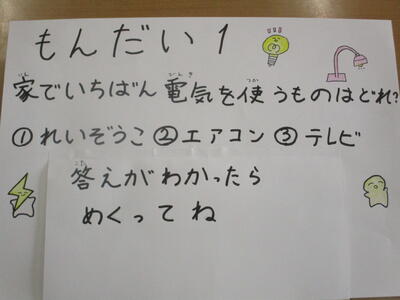 もんだい1
家でいちばん電気を使うものはどれ?
①れいぞうこ ②エアコン ③テレビ
答えがわかったら
めくってね